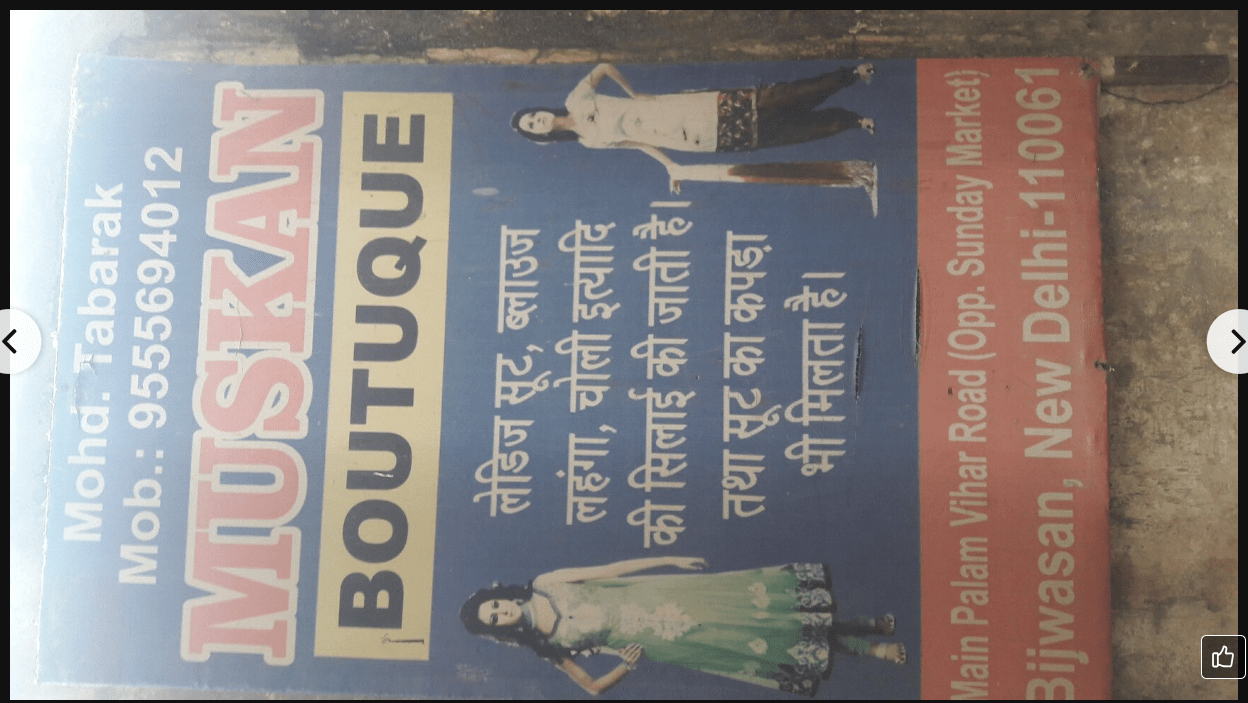 Mohd. Tabarak
Mob.: 9555694012
MUSKAN
BOUTUQUE
लेडिज सूट, ब्लाउज
लहंगा, चोली इत्यादि
की सिलाई की जाती है।
तथा सूट का कपड़ा
भी मिलता है।
Main Palam Vihar Road (Opp. Sunday Market)
Bijwasan, New Delhi-110061